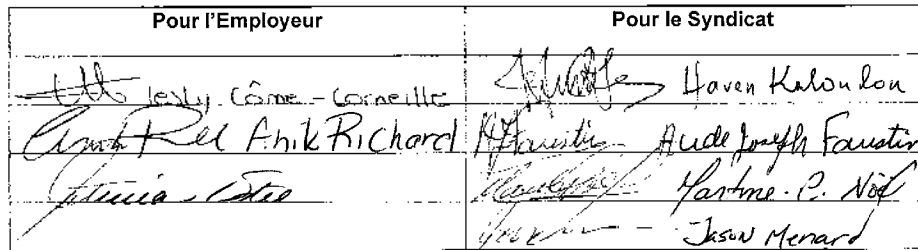 Pour l'Employeur
Pour le Syndicat
Lesly Côme-Corneille
Haven Kaloulou
Anik Richard
Aude Joseph Faustin
Martine-P. Noël
Jason Menard